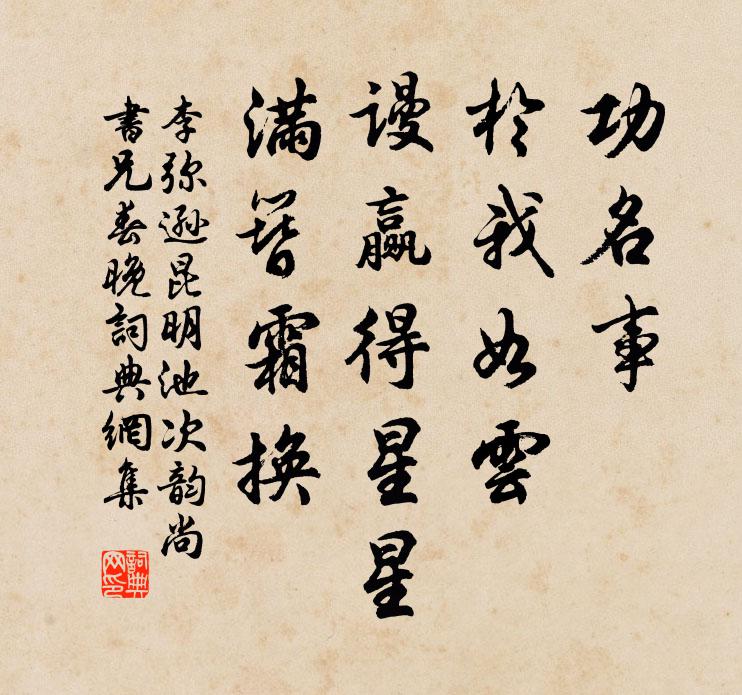 功名事
於我如雲
謾贏得星星
滿簪霜換
李弥遜昆明池次韵尚
書兄春晚詞典網集
詞典
网印